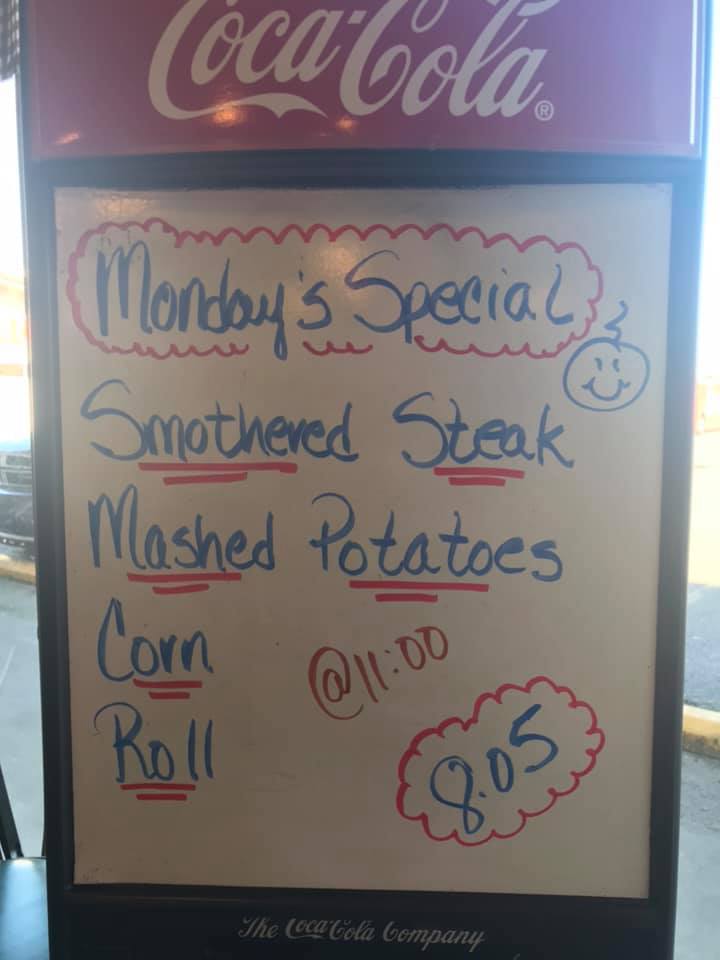 Coca-Cola®
Monday's Special
Smothered Steak
Mashed Potatoes
Corn
@11:00
Roll
8.05
The Coca-Cola Company